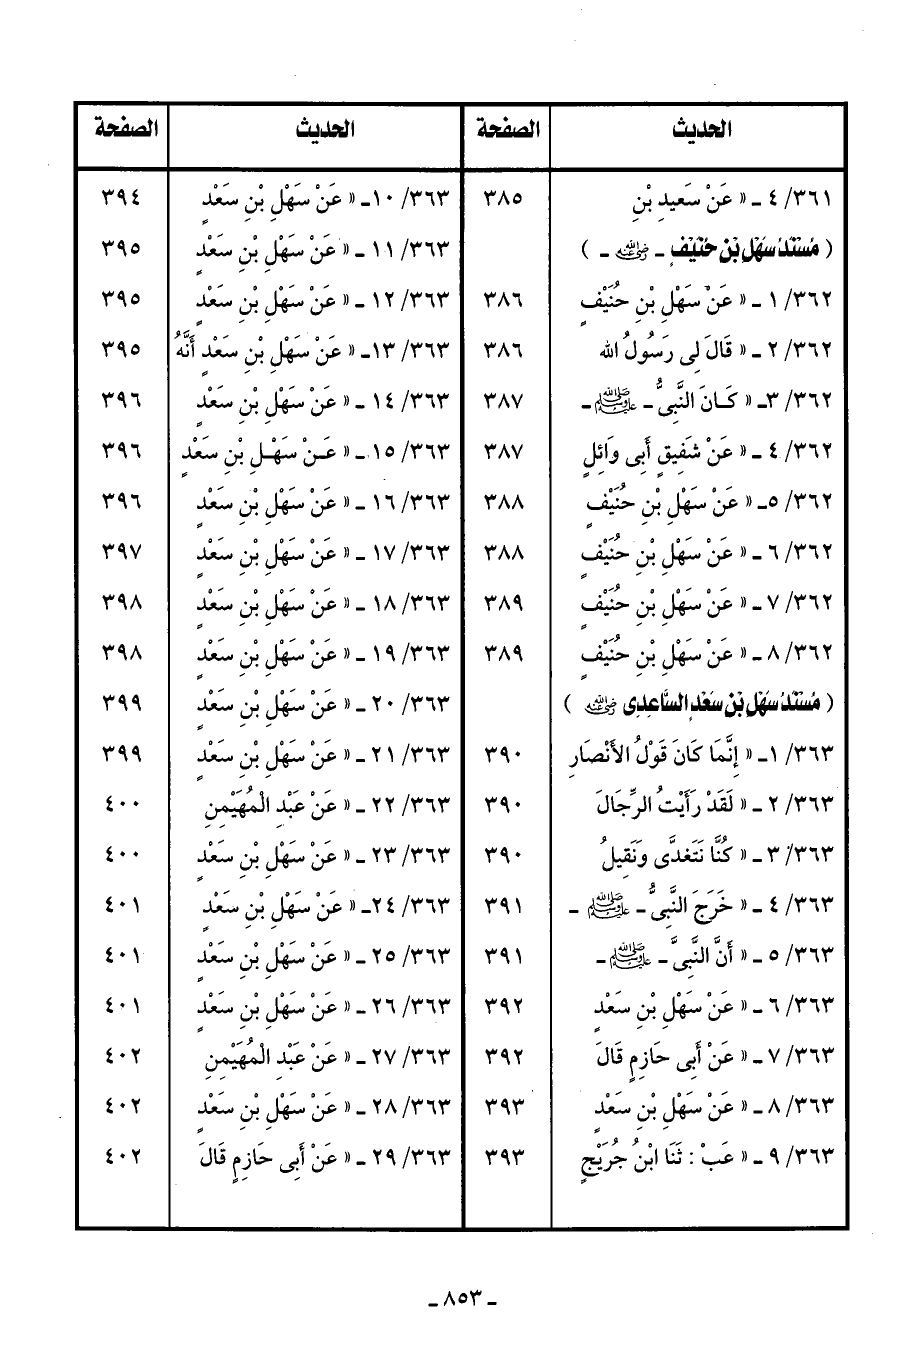 الحديث الصفحة الحديث الصفحة
٣٦١/ ٤ ـ « عَنْ سَعِيدِ بْنِ ٣٨٥ ٣٦٣/ ١٠ـ « عَنْ سَهْلِ بْنِ سَعْدٍ ٣٩٤
( مُسْنَدُ سَهْلِ بْنِ حُنَيْفٍ ـ رضي الله عنه ـ ) ٣٦٣/ ١١ ـ « عَنْ سَهْلِ بْنِ سَعْدٍ ٣٩٥
٣٦٢/ ١ ـ « عَنْ سَهْلِ بْنِ حُنَيْفٍ ٣٨٦ ٣٦٣/ ١٢ ـ « عَنْ سَهْلِ بْنِ سَعْدٍ ٣٩٥
٣٦٢/ ٢ ـ « قَالَ لِى رَسُولُ الله ٣٨٦ ٣٦٣/ ١٣ـ « عَنْ سَهْلِ بْنِ سَعْدٍ أَنَّهُ ٣٩٥
٣٦٢/ ٣ـ « كَـانَ النَّبِىُّ ـ ﷺ ـ ٣٨٧ ٣٦٣/ ١٤ ـ « عَنْ سَهْلِ بْنِ سَعْدٍ ٣٩٦
٣٦٢/ ٤ ـ « عَنْ شَفِيقٍ أَبِى وَائِلٍ ٣٨٧ ٣٦٣/ ١٥ ـ « عَـنْ سَهْـلِ بْنِ سَعْدٍ ٣٩٦
٣٦٢/ ٥ـ « عَنْ سَهْلِ بْنِ حُنَيْفٍ ٣٨٨ ٣٦٣/ ١٦ ـ « عَنْ سَهْلِ بْنِ سَعْدٍ ٣٩٦
٣٦٢/ ٦ ـ « عَنْ سَهْلِ بْنِ حُنَيْفٍ ٣٨٨ ٣٦٣/ ١٧ ـ « عَنْ سَهْلِ بْنِ سَعْدٍ ٣٩٧
٣٦٢/ ٧ ـ « عَنْ سَهْلِ بْنِ حُنَيْفٍ ٣٨٩ ٣٦٣/ ١٨ ـ « عَنْ سَهْلِ بْنِ سَعْدٍ ٣٩٨
٣٦٢/ ٨ ـ « عَنْ سَهْلِ بْنِ حُنَيْفٍ ٣٨٩ ٣٦٣/ ١٩ ـ « عَنْ سَهْلِ بْنِ سَعْدٍ ٣٩٨
( مُسْنَدُ سَهْلِ بْنِ سَعْدٍ السَّاعِدِى رضي الله عنه ) ٣٦٣/ ٢٠ ـ « عَنْ سَهْلِ بْنِ سَعْدٍ ٣٩٩
٣٦٣/ ١ـ « إِنَّمَا كَانَ قَوْلُ الأَنْصَارِ ٣٩٠ ٣٦٣/ ٢١ ـ « عَنْ سَهْلِ بْنِ سَعْدٍ ٣٩٩
٣٦٣/ ٢ ـ « لَقَدْ رَأَيْتُ الرِّجَالَ ٣٩٠ ٣٦٣/ ٢٢ ـ « عَنْ عَبْدِ الْمُهَيْمِنِ ٤٠٠
٣٦٣/ ٣ ـ « كُنَّا نَتَغَدَّى وَنَقِيلُ ٣٩٠ ٣٦٣/ ٢٣ ـ « عَنْ سَهْلِ بْنِ سَعْدٍ ٤٠٠
٣٦٣/ ٤ ـ « خَرَجَ النَّبِىُّ ـ ﷺ ـ ٣٩١ ٣٦٣/ ٢٤ـ « عَنْ سَهْلِ بْنِ سَعْدٍ ٤٠١
٣٦٣/ ٥ ـ « أَنَّ النَّبِىَّ ـ ﷺ ـ ٣٩١ ٣٦٣/ ٢٥ ـ « عَنْ سَهْلِ بْنِ سَعْدٍ ٤٠١
٣٦٣/ ٦ ـ « عَنْ سَهْلِ بْنِ سَعْدٍ ٣٩٢ ٣٦٣/ ٢٦ ـ « عَنْ سَهْلِ بْنِ سَعْدٍ ٤٠١
٣٦٣/ ٧ ـ « عَنْ أَبِى حَازِمٍ قَالَ ٣٩٢ ٣٦٣/ ٢٧ ـ « عَنْ عَبْدِ الْمُهَيْمِنِ ٤٠٢
٣٦٣/ ٨ ـ « عَنْ سَهْلِ بْنِ سَعْدٍ ٣٩٣ ٣٦٣/ ٢٨ ـ « عَنْ سَهْلِ بْنِ سَعْدٍ ٤٠٢
٣٦٣/ ٩ ـ « عَبْ : ثَنَا ابْنُ جُرَيْجٍ ٣٩٣ ٣٦٣/ ٢٩ ـ « عَنْ أَبِى حَازِمٍ قَالَ ٤٠٢
ـ ٨٥٣ ـ